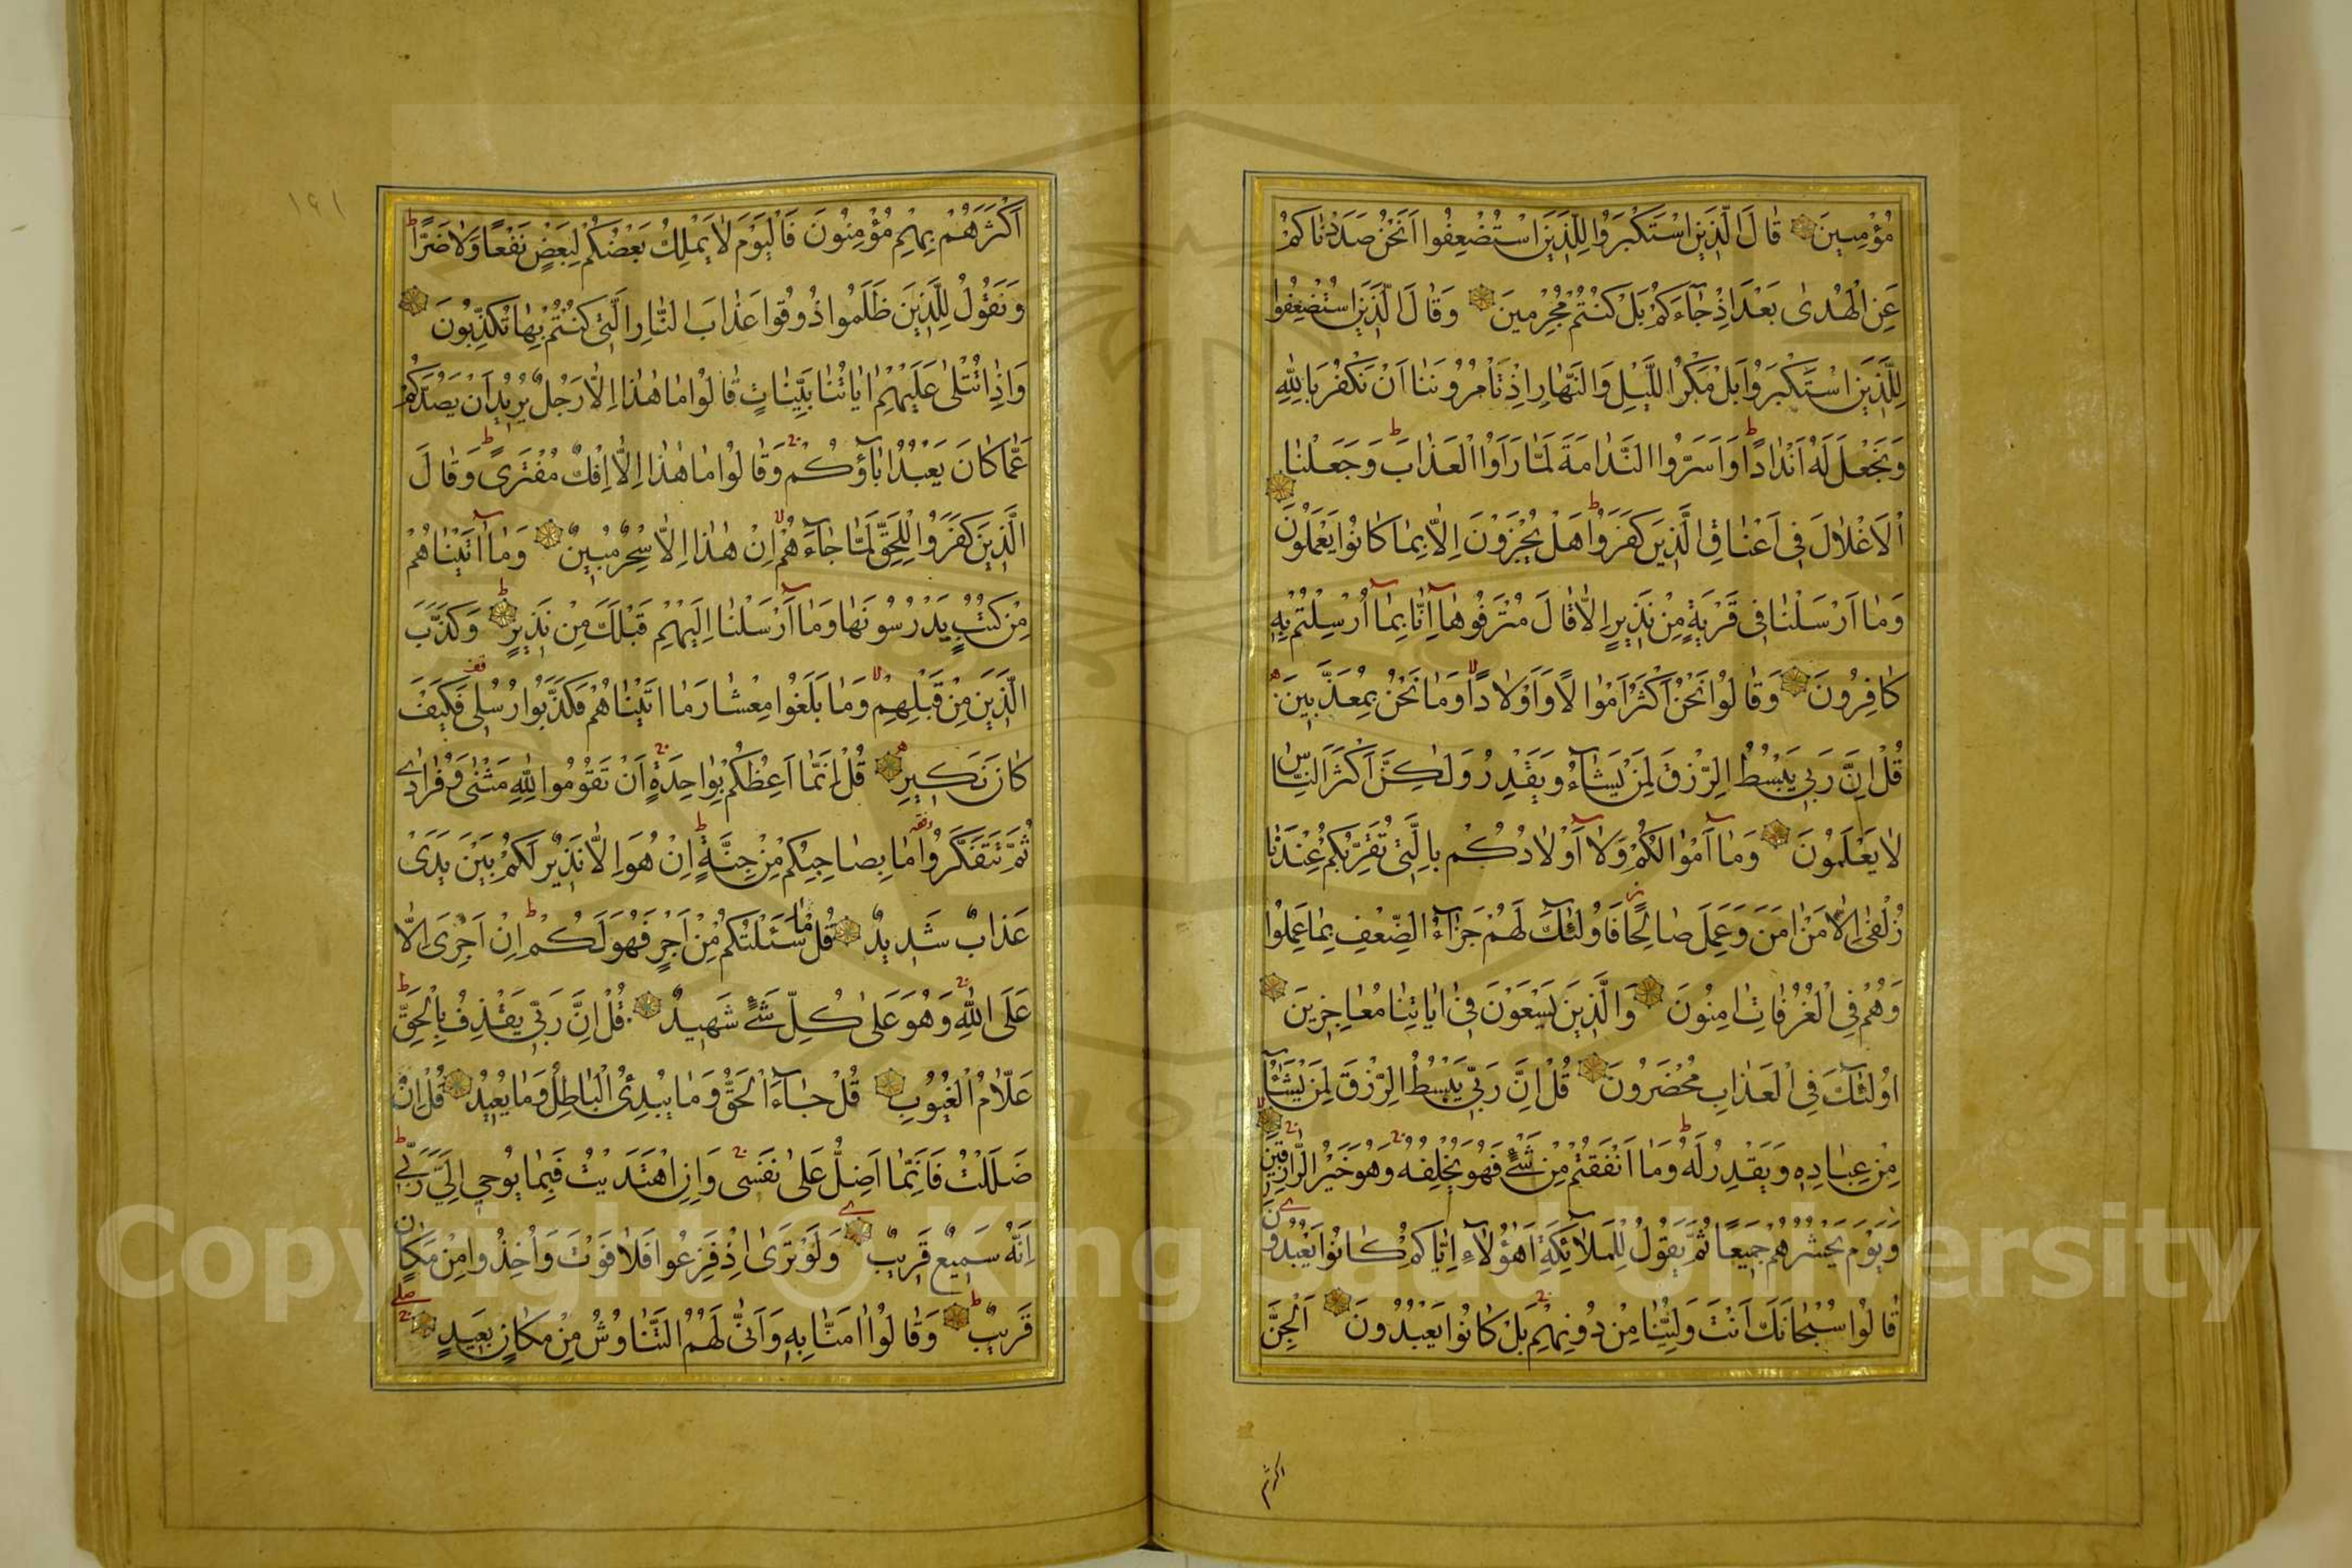 مُؤْمِنِينَ قَالَ الَّذِينَ اسْتَكْبَرُوا لِلَّذِينَ اسْتُضْعِفُوا اَنَحْنُ صَدَدْنَاكُمْ
عَنِ الْهُدٰى بَعْدَ اِذْ جَاءَكُمْ بَلْ كُنْتُمْ مُجْرِمِينَ وَقَالَ الَّذِينَ اسْتُضْعِفُوا
لِلَّذِينَ اسْتَكْبَرُوا بَلْ مَكْرُ اللَّيْلِ وَالنَّهَارِ اِذْ تَأْمُرُونَنَا اَنْ نَكْفُرَ بِاللهِ
وَنَجْعَلَ لَهُ اَنْدَادًا وَاَسَرُّوا النَّدَامَةَ لَمَّا رَاَوُا الْعَذَابَ وَجَعَلْنَا
الْاَغْلَالَ فِي اَعْنَاقِ الَّذِينَ كَفَرُوا هَلْ يُجْزَوْنَ اِلَّا بِمَا كَانُوا يَعْمَلُونَ
وَمَا اَرْسَلْنَا فِي قَرْيَةٍ مِنْ نَذِيرٍ اِلَّا قَالَ مُتْرَفُوهَا اِنَّا بِمَا اُرْسِلْتُمْ بِهِ
كَافِرُونَ وَقَالُوا نَحْنُ اَكْثَرُ اَمْوَالًا وَاَوْلَادًا وَمَا نَحْنُ بِمُعَذَّبِينَ
قُلْ اِنَّ رَبِّي يَبْسُطُ الرِّزْقَ لِمَنْ يَشَاءُ وَيَقْدِرُ وَلٰكِنَّ اَكْثَرَ النَّاسِ
لَا يَعْلَمُونَ وَمَا اَمْوَالُكُمْ وَلَا اَوْلَادُكُمْ بِالَّتِي تُقَرِّبُكُمْ عِنْدَنَا
زُلْفٰى اِلَّا مَنْ اٰمَنَ وَعَمِلَ صَالِحًا فَاُولٰئِكَ لَهُمْ جَزَاءُ الضِّعْفِ بِمَا عَمِلُوا
وَهُمْ فِي الْغُرُفَاتِ اٰمِنُونَ وَالَّذِينَ يَسْعَوْنَ فِي اٰيَاتِنَا مُعَاجِزِينَ
اُولٰئِكَ فِي الْعَذَابِ مُحْضَرُونَ قُلْ اِنَّ رَبِّي يَبْسُطُ الرِّزْقَ لِمَنْ يَشَاءُ
مِنْ عِبَادِهِ وَيَقْدِرُ لَهُ وَمَا اَنْفَقْتُمْ مِنْ شَيْءٍ فَهُوَ يُخْلِفُهُ وَهُوَ خَيْرُ الرَّازِقِينَ
وَيَوْمَ يَحْشُرُهُمْ جَمِيعًا ثُمَّ يَقُولُ لِلْمَلَائِكَةِ اَهٰؤُلَاءِ اِيَّاكُمْ كَانُوا يَعْبُدُونَ
قَالُوا سُبْحَانَكَ اَنْتَ وَلِيُّنَا مِنْ دُونِهِمْ بَلْ كَانُوا يَعْبُدُونَ الْجِنَّ
اكثرهم
١٩١
اَكْثَرُهُمْ بِهِمْ مُؤْمِنُونَ فَالْيَوْمَ لَا يَمْلِكُ بَعْضُكُمْ لِبَعْضٍ نَفْعًا وَلَا ضَرًّا
وَنَقُولُ لِلَّذِينَ ظَلَمُوا ذُوقُوا عَذَابَ النَّارِ الَّتِي كُنْتُمْ بِهَا تُكَذِّبُونَ
وَاِذَا تُتْلٰى عَلَيْهِمْ اٰيَاتُنَا بَيِّنَاتٍ قَالُوا مَا هٰذَا اِلَّا رَجُلٌ يُرِيدُ اَنْ يَصُدَّكُمْ
عَمَّا كَانَ يَعْبُدُ اٰبَاؤُكُمْ وَقَالُوا مَا هٰذَا اِلَّا اِفْكٌ مُفْتَرًى وَقَالَ
الَّذِينَ كَفَرُوا لِلْحَقِّ لَمَّا جَاءَهُمْ اِنْ هٰذَا اِلَّا سِحْرٌ مُبِينٌ وَمَا اٰتَيْنَاهُمْ
مِنْ كُتُبٍ يَدْرُسُونَهَا وَمَا اَرْسَلْنَا اِلَيْهِمْ قَبْلَكَ مِنْ نَذِيرٍ وَكَذَّبَ
الَّذِينَ مِنْ قَبْلِهِمْ وَمَا بَلَغُوا مِعْشَارَ مَا اٰتَيْنَاهُمْ فَكَذَّبُوا رُسُلِي فَكَيْفَ
كَانَ نَكِيرِ قُلْ اِنَّمَا اَعِظُكُمْ بِوَاحِدَةٍ اَنْ تَقُومُوا لِلهِ مَثْنٰى وَفُرَادٰى
ثُمَّ تَتَفَكَّرُوا مَا بِصَاحِبِكُمْ مِنْ جِنَّةٍ اِنْ هُوَ اِلَّا نَذِيرٌ لَكُمْ بَيْنَ يَدَيْ
عَذَابٍ شَدِيدٍ قُلْ مَا سَئَلْتُكُمْ مِنْ اَجْرٍ فَهُوَ لَكُمْ اِنْ اَجْرِيَ اِلَّا
عَلَى اللهِ وَهُوَ عَلٰى كُلِّ شَيْءٍ شَهِيدٌ قُلْ اِنَّ رَبِّي يَقْذِفُ بِالْحَقِّ
عَلَّامُ الْغُيُوبِ قُلْ جَاءَ الْحَقُّ وَمَا يُبْدِئُ الْبَاطِلُ وَمَا يُعِيدُ قُلْ اِنْ
ضَلَلْتُ فَاِنَّمَا اَضِلُّ عَلٰى نَفْسِي وَاِنِ اهْتَدَيْتُ فَبِمَا يُوحِي اِلَيَّ رَبِّي
اِنَّهُ سَمِيعٌ قَرِيبٌ وَلَوْ تَرٰى اِذْ فَزِعُوا فَلَا فَوْتَ وَاُخِذُوا مِنْ مَكَانٍ
قَرِيبٍ وَقَالُوا اٰمَنَّا بِهِ وَاَنّٰى لَهُمُ التَّنَاوُشُ مِنْ مَكَانٍ بَعِيدٍ
Copyright © King Saud University
1957